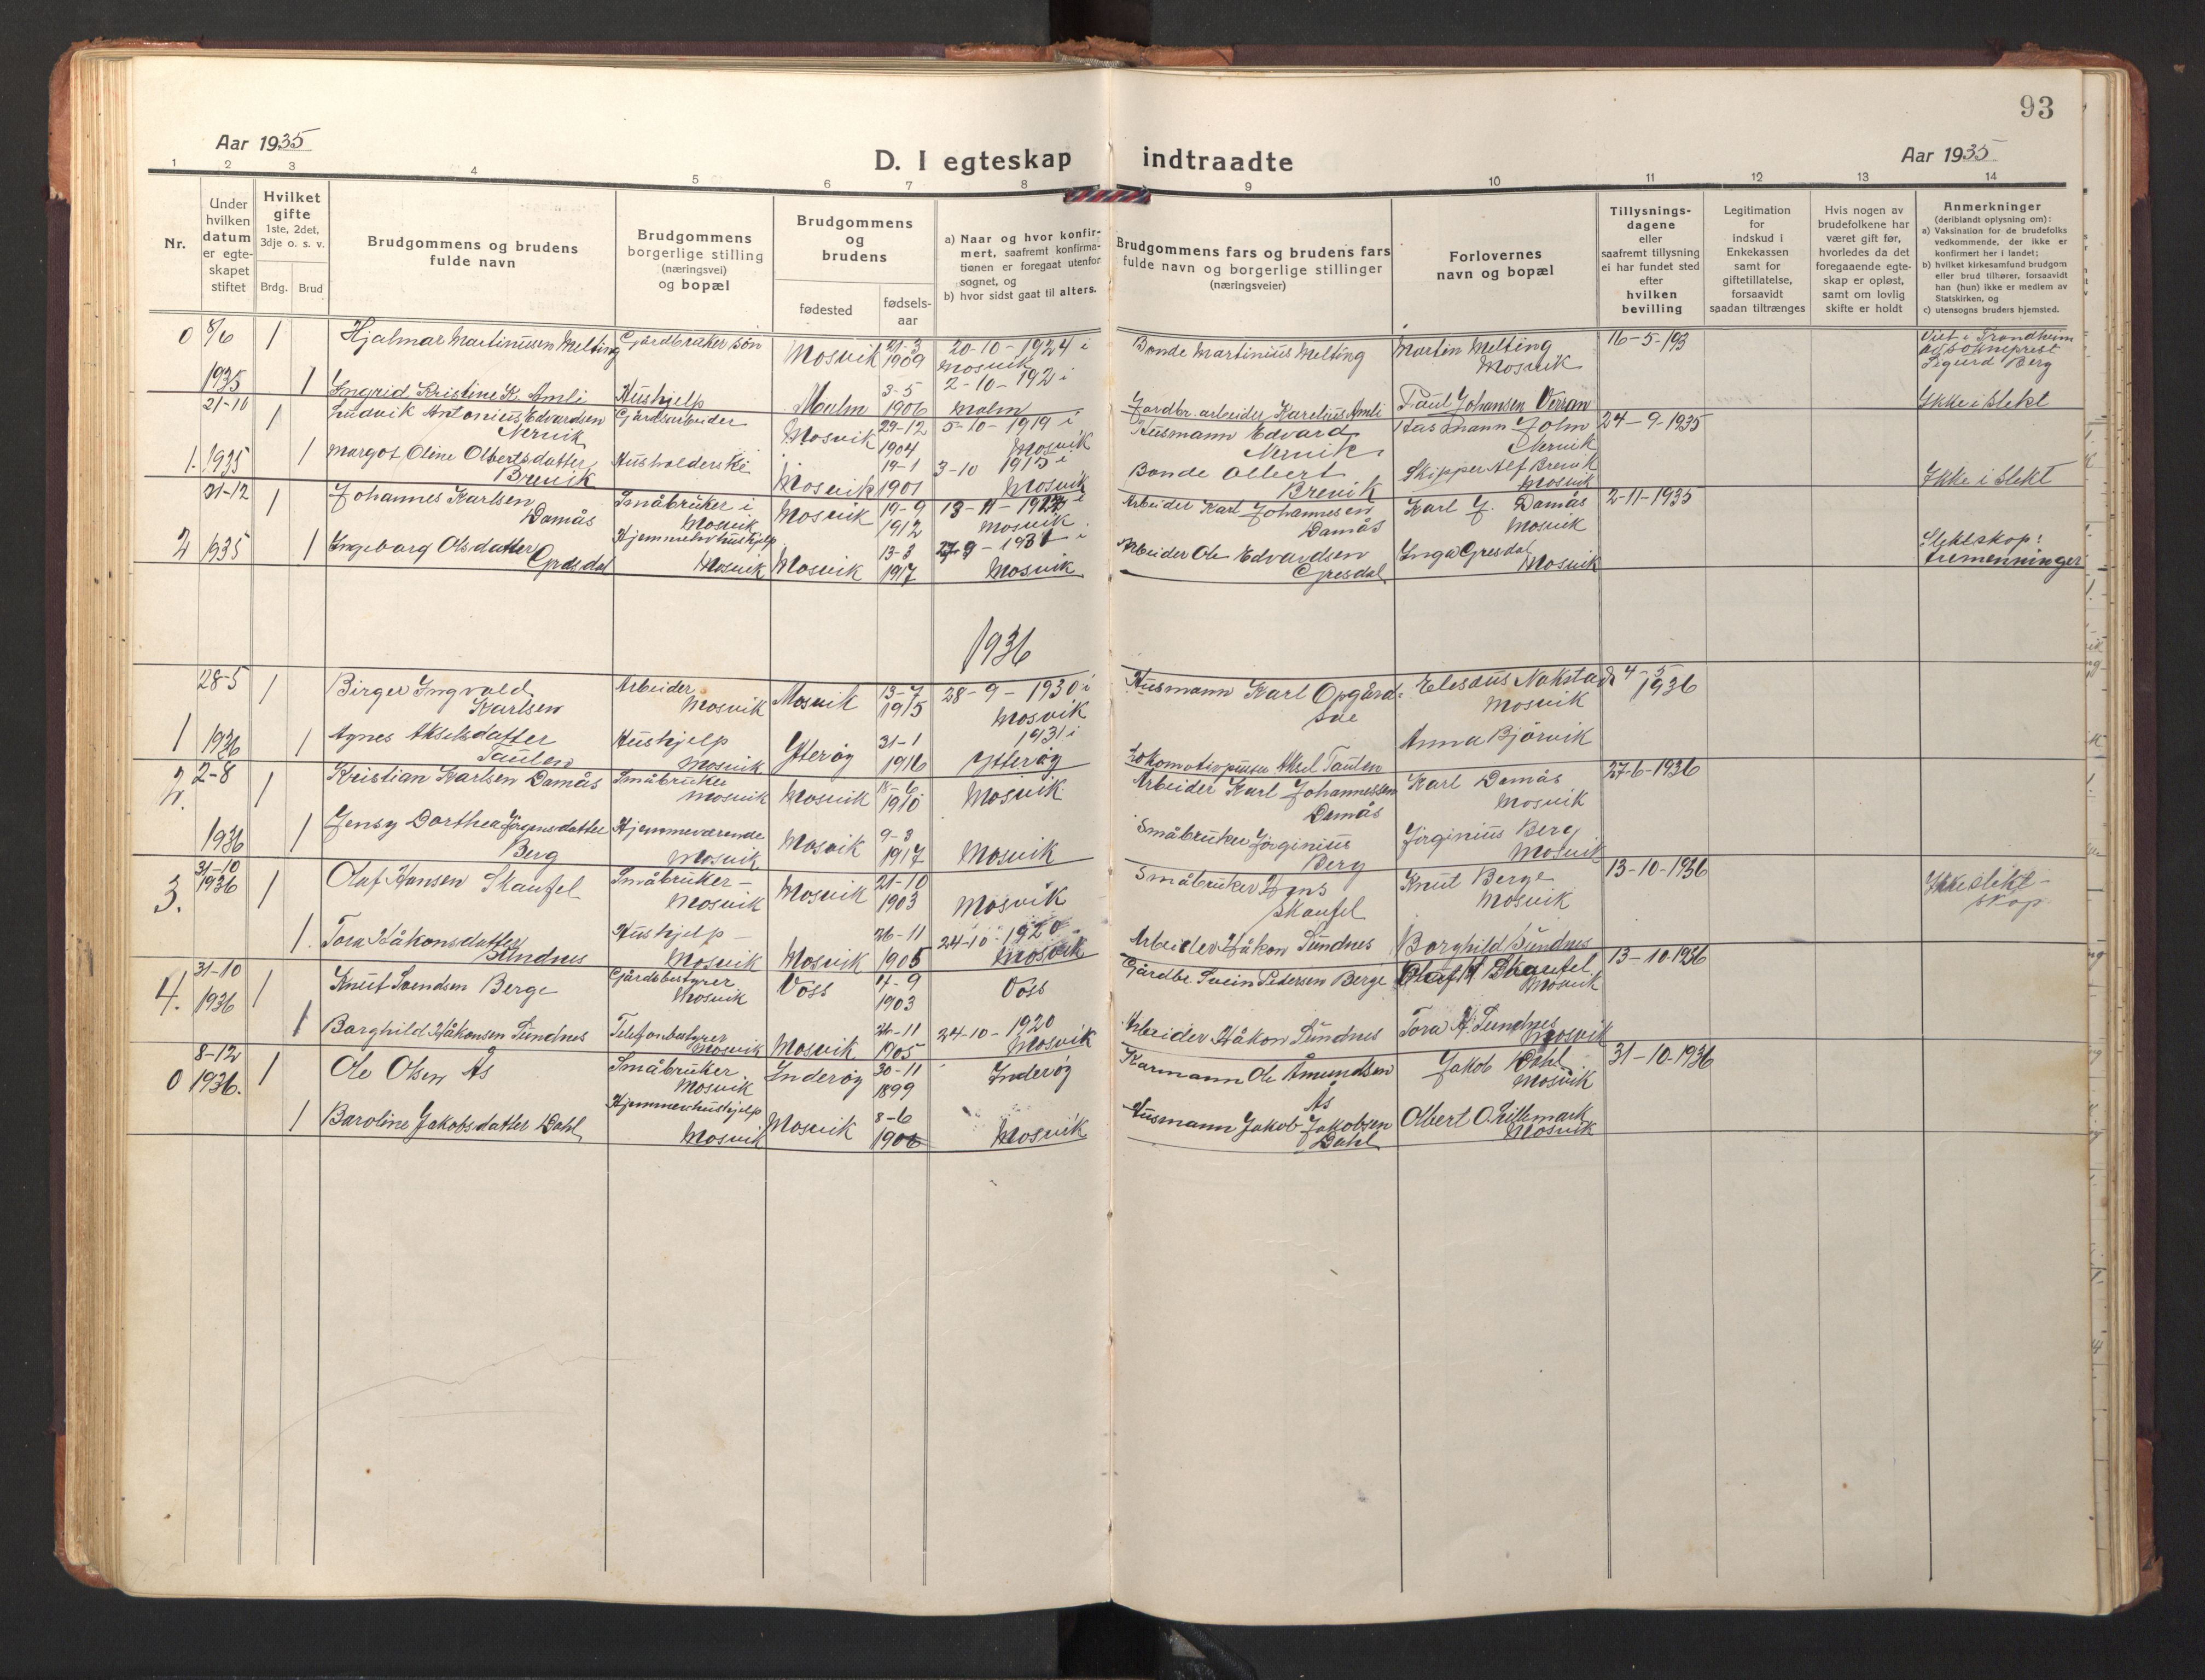 93
Aar 1935
D. I egteskap indtraadte
Aar 1935
1 2 3 4 5 6 7 8 9 10 11 12 13 14
Nr.
Under
hvilken
datum
er egte-
skapet
stiftet
Hvilket
gifte
1ste, 2det,
3dje o. s. v.
Brdg. Brud
Brudgommens og brudens
fulde navn
Brudgommens
borgerlige stilling
(næringsvei)
og bopæl
Brudgommens
og
brudens
fødested
fødsels-
aar
a) Naar og hvor konfir-
mert, saafremt konfirma-
tionen er foregaat utenfor
sognet, og
b) hvor sidst gaat til alters.
Brudgommens fars og brudens fars
fulde navn og borgerlige stillinger
(næringsveier)
Forlovernes
navn og bopæl
Tillysnings-
dagene
eller
saafremt tillysning
ei har fundet sted
efter
hvilken
bevilling
Legitimation
for
indskud i
Enkekassen
samt for
giftetillatelse,
forsaavidt
saadan tiltrænges
Hvis nogen av
brudefolkene har
været gift før,
hvorledes da det
foregaaende egte-
skap er opløst,
samt om lovlig
skifte er holdt
Anmerkninger
(deriblandt oplysning om):
a) Vaksination for de brudefolks
vedkommende, der ikke er
konfirmert her i landet;
b) hvilket kirkesamfund brudgom
eller brud tilhører, forsaavidt
han (hun) ikke er medlem av
Statskirken, og
c) utensogns bruders hjemsted.
0 8/6 1 Hjalmar Martinusen Melting Gårdbruker søn Mosvik 21-3 1909 20-10-1924 i Mosvik Bonde Martinus Melting Martin Melting Mosvik 16-5-193 Viet i Trondheim
av sokneprest
Sigurd Berg
1935 1 Ingrid Kristine K. Amli Hushjelp Malm 3-5 1906 2-10-1921 i Malm Jordbr. arbeider Karelius Amli Paul Johansen Verran Ikke i slekt
21-10 1 Ludvik Antonius Edvardsen
Nervik Gårdsarbeider Mosvik 29-12 1904 5-10-1919 i Mosvik Husmann Edvard
Nervik Husmann John
Nervik 24-9-1935
1. 1935 1 Margot Oline Olbertsdatter
Brevik Husholderske Mosvik 19-1 1901 3-10 1915 i Mosvik Bonde Olbert
Brevik Skipper Alf Brevik
Mosvik Ikke i slekt
31-12 1 Johannes Karlsen
Damås Småbruker i
Mosvik Mosvik 19-9 1912 Mosvik Arbeider Karl Johannesen
Damås Karl J. Damås
Mosvik 2-11-1935
2 1935 1 Ingeborg Olsdatter
Gresdal Mosvik Mosvik 13-3 1917 Mosvik Arbeider Ole Edvardsen
Gresdal Inga Gresdal
Mosvik Slektskap:
tremenninger
1936
28-5 1 Birger Ingvald
Karlsen Arbeider
Mosvik Mosvik 13-7 1915 28-9-1930 i
Mosvik Husmann Karl Opgård- Elesæus Nakstad
Mosvik 4-5
1936
1 1936 1 Agnes Akselsdatter
Tauten Hushjelp
Mosvik Ytterøy 31-1 1916 1931 i
Ytterøy Lokomotivpusser Aksel Tauten Anna Bjørvik
2. 2-8 1 Kristian Karlsen Damås Småbruker
Mosvik Mosvik 18-6 1910 Mosvik Arbeider Karl Johannessen
Damås Karl Damås
Mosvik 27-6-1936
1936 1 Jensy Dorthea Jørgensdatter
Berg Hjemmeværende
Mosvik Mosvik 9-3 1917 Mosvik Småbruker Jørginius
Berg Jørginius Berg
Mosvik
3. 31-10
1936 1 Olaf Hansen Skaufel Småbruker-
Mosvik Mosvik 21-10 1903 Mosvik Småbruker Hans
Skaufel Knut Berge
Mosvik 13-10-1936 Ikke slekt-
skap
1. Tora Håkonsdatter
Sundnes Hushjelp-
Mosvik Mosvik 26-11 1905 24-10-1920
Mosvik Arbeider Håkon Sundnes Borghild Sundnes
4. 31-10
1936 1 Knut Svendsen Berge Gårdsbestyrer
Mosvik Voss 17-9 1903 Voss Gårdbr. Svein Pedersen Berge Olaf H Skaufel
Mosvik 13-10-1936
1 Borghild Håkonsen Sundnes Telefonbestyrer
Mosvik Mosvik 26-11 1905 24-10-1920
Mosvik Arbeider Håkon Sundnes Tora H. Sundnes
Mosvik
0 8-12
1936. 1 Ole Olsen Ås Småbruker
Mosvik Inderøy 30-11 1899 Inderøy Kårmann Ole Amundsen
Ås Jakob Dahl
Mosvik 31-10-1936
1 Baroline Jakobsdatter Dahl Mosvik Mosvik 8-6 Mosvik Husmann Jakob Jakobsen
Dahl Olbert O. Lillemark
Mosvik